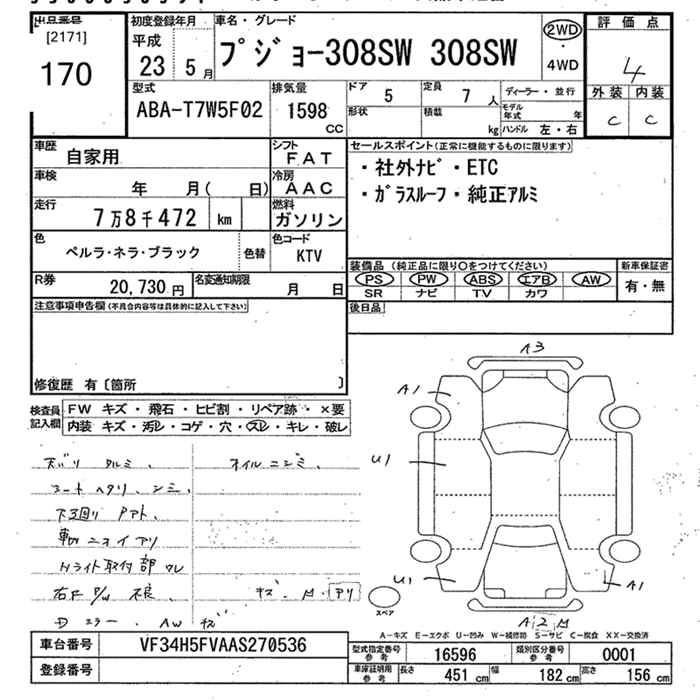 出品番号
[2171]
170
初度登録年月
平成
23 5月
車名・グレード
プジョー308SW 308SW
2WD
・
4WD
評価点
4
外装 内装
C C
型式
ABA-T7W5F02
排気量
1598
CC
ドア
5
定員
7人
形状
積載
kg
ディーラー・並行
モデル年式 年
ハンドル 左・右
車歴
自家用
シフト
FAT
車検
年 月( 日)
冷房
AAC
走行
7万8千472 km
燃料
ガソリン
色
ペルラ・ネラ・ブラック
色替
色コード
KTV
R券
20,730円
名変通知期限
月 日
セールスポイント(正常に機能するものに限ります)
・社外ナビ・ETC
・ガラスルーフ・純正アルミ
装備品 (純正品に限り○をつけてください)
PS PW ABS エアB AW
SR ナビ TV カワ
新車保証書
有・無
後日品
注意事項申告欄(不具合内容等は具体的に記入して下さい)
修復歴 有〔箇所 〕
検査員記入欄
FW キズ・飛石・ヒビ割・リペア跡・×要
内装 キズ・汚レ・コゲ・穴・スレ・キレ・破レ
天バリ タルミ、
オイルニジミ、
シートヘタリ、シミ、
下回り
車内ニオイアリ
Hライト取付部ワレ
右F P/W 不良
キズ・凹 アリ
エラー、AW キズ
A3
A1
U1
U1
A1
A2凹
スペア
A-キズ E-エクボ U-凹み W-補修跡 S-サビ C-腐食 XX-交換済
車台番号
VF34H5FVAAS270536
登録番号
型式指定番号
参考
16596
類別区分番号
参考
0001
車庫証明用
参考
長さ 451cm 幅 182cm 高さ 156cm